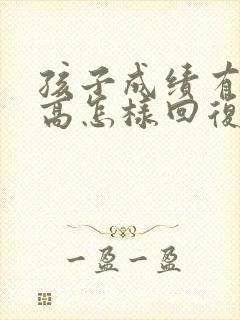 孩子成绩有
高怎样回復
一盈一盈